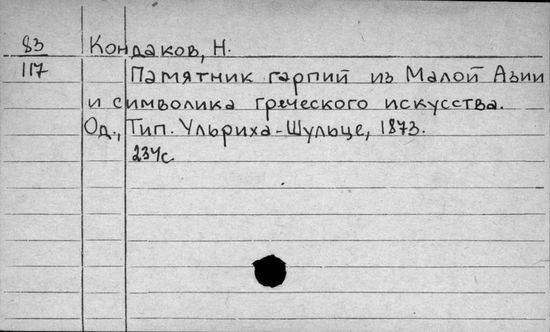 83 Кондаков, Н.
117 Памятник гарпий из Малой Азии
и символика греческого искусства.
Од., Тип. Ульриха-Шульце, 1873.
234с.